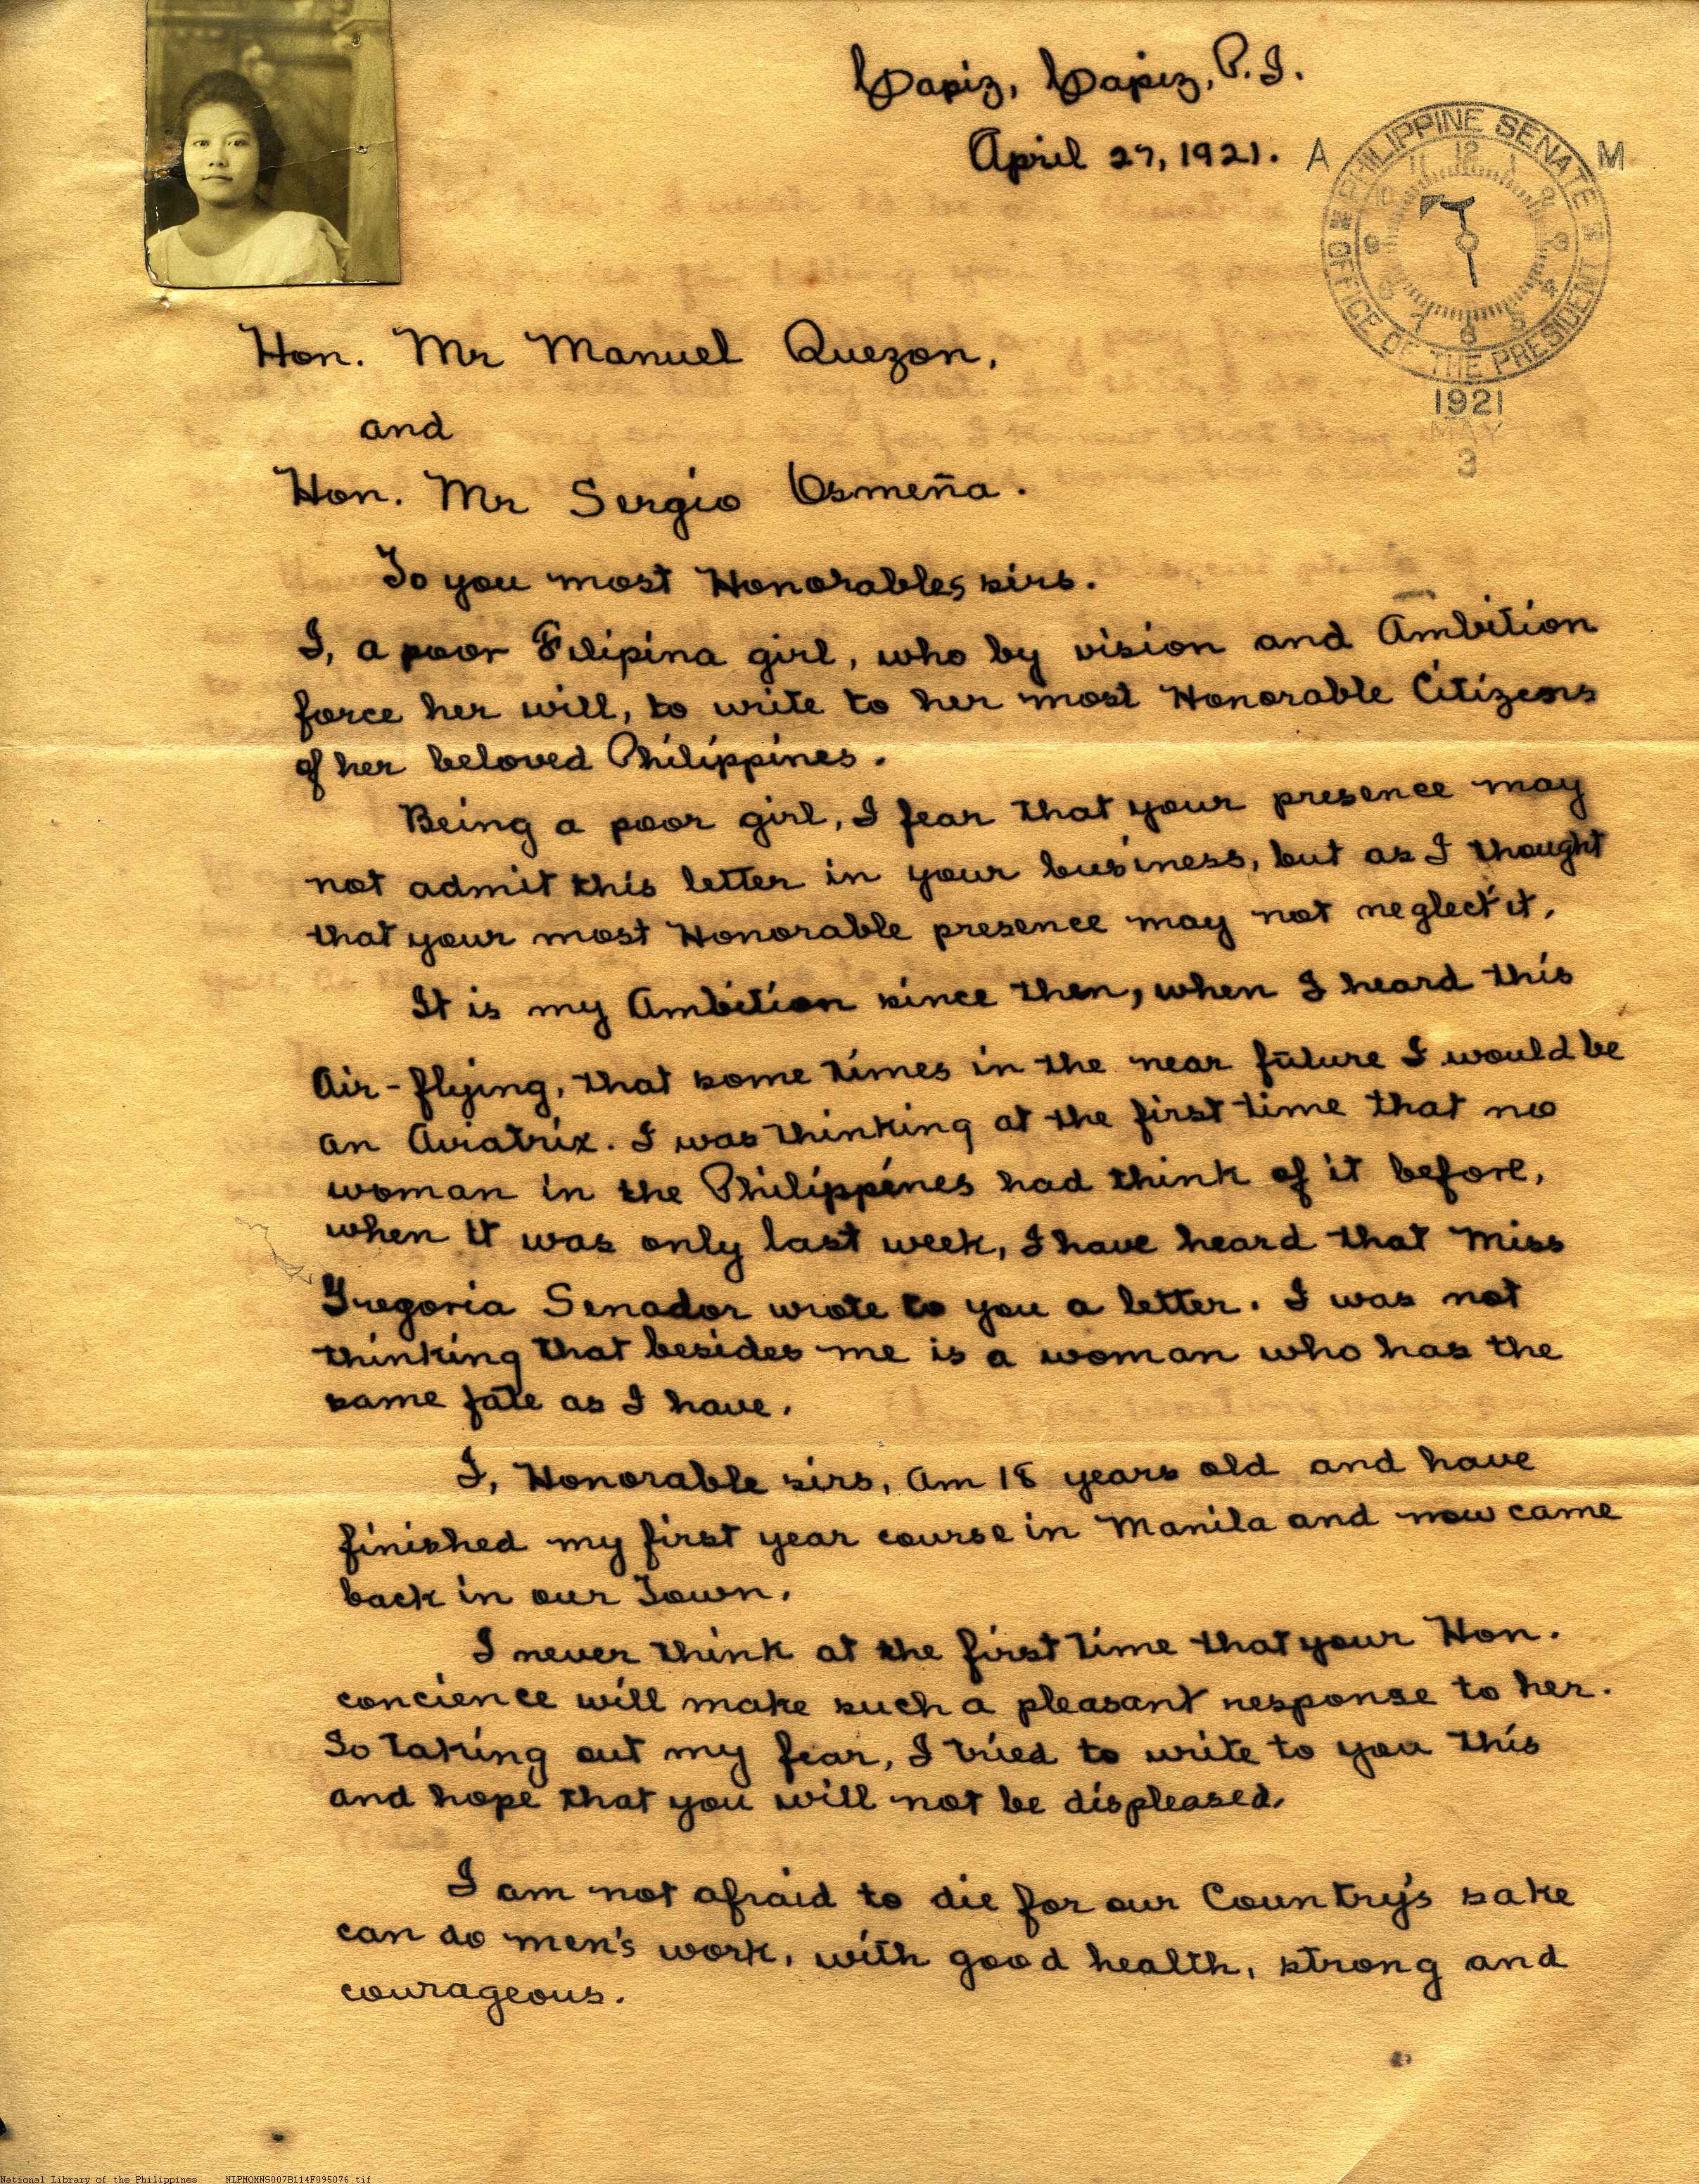 Capiz, Capiz, P.I.
April 27, 1921.
A M
PHILIPPINE SENATE
OFFICE OF THE PRESIDENT
12 1 2 3 4 5 6 7 8 9 10 11
1921
MAY
3
Hon. Mr Manuel Quezon,
and
Hon. Mr Sergio Osmeña.
To you most Honorables sirs.
I, a poor Filipina girl, who by vision and Ambition
force her will, to write to her most Honorable Citizens
of her beloved Philippines.
Being a poor girl, I fear that your presence may
not admit this letter in your business, but as I thought
that your most Honorable presence may not neglect it.
It is my Ambition since then, when I heard this
Air-flying, that some times in the near future I would be
an Aviatrix. I was thinking at the first time that no
woman in the Philippines had think of it before,
when it was only last week, I have heard that Miss
Gregoria Senador wrote to you a letter. I was not
thinking that besides me is a woman who has the
same fate as I have.
I, Honorable sirs, Am 18 years old and have
finished my first year course in Manila and now came
back in our Town.
I never think at the first time that your Hon.
concience will make such a pleasant response to her.
So taking out my fear, I tried to write to you this
and hope that you will not be displeased.
I am not afraid to die for our Country's sake
can do men's work, with good health, strong and
courageous.
National Library of the Philippines NLPMQMNS007B114F095076.tif